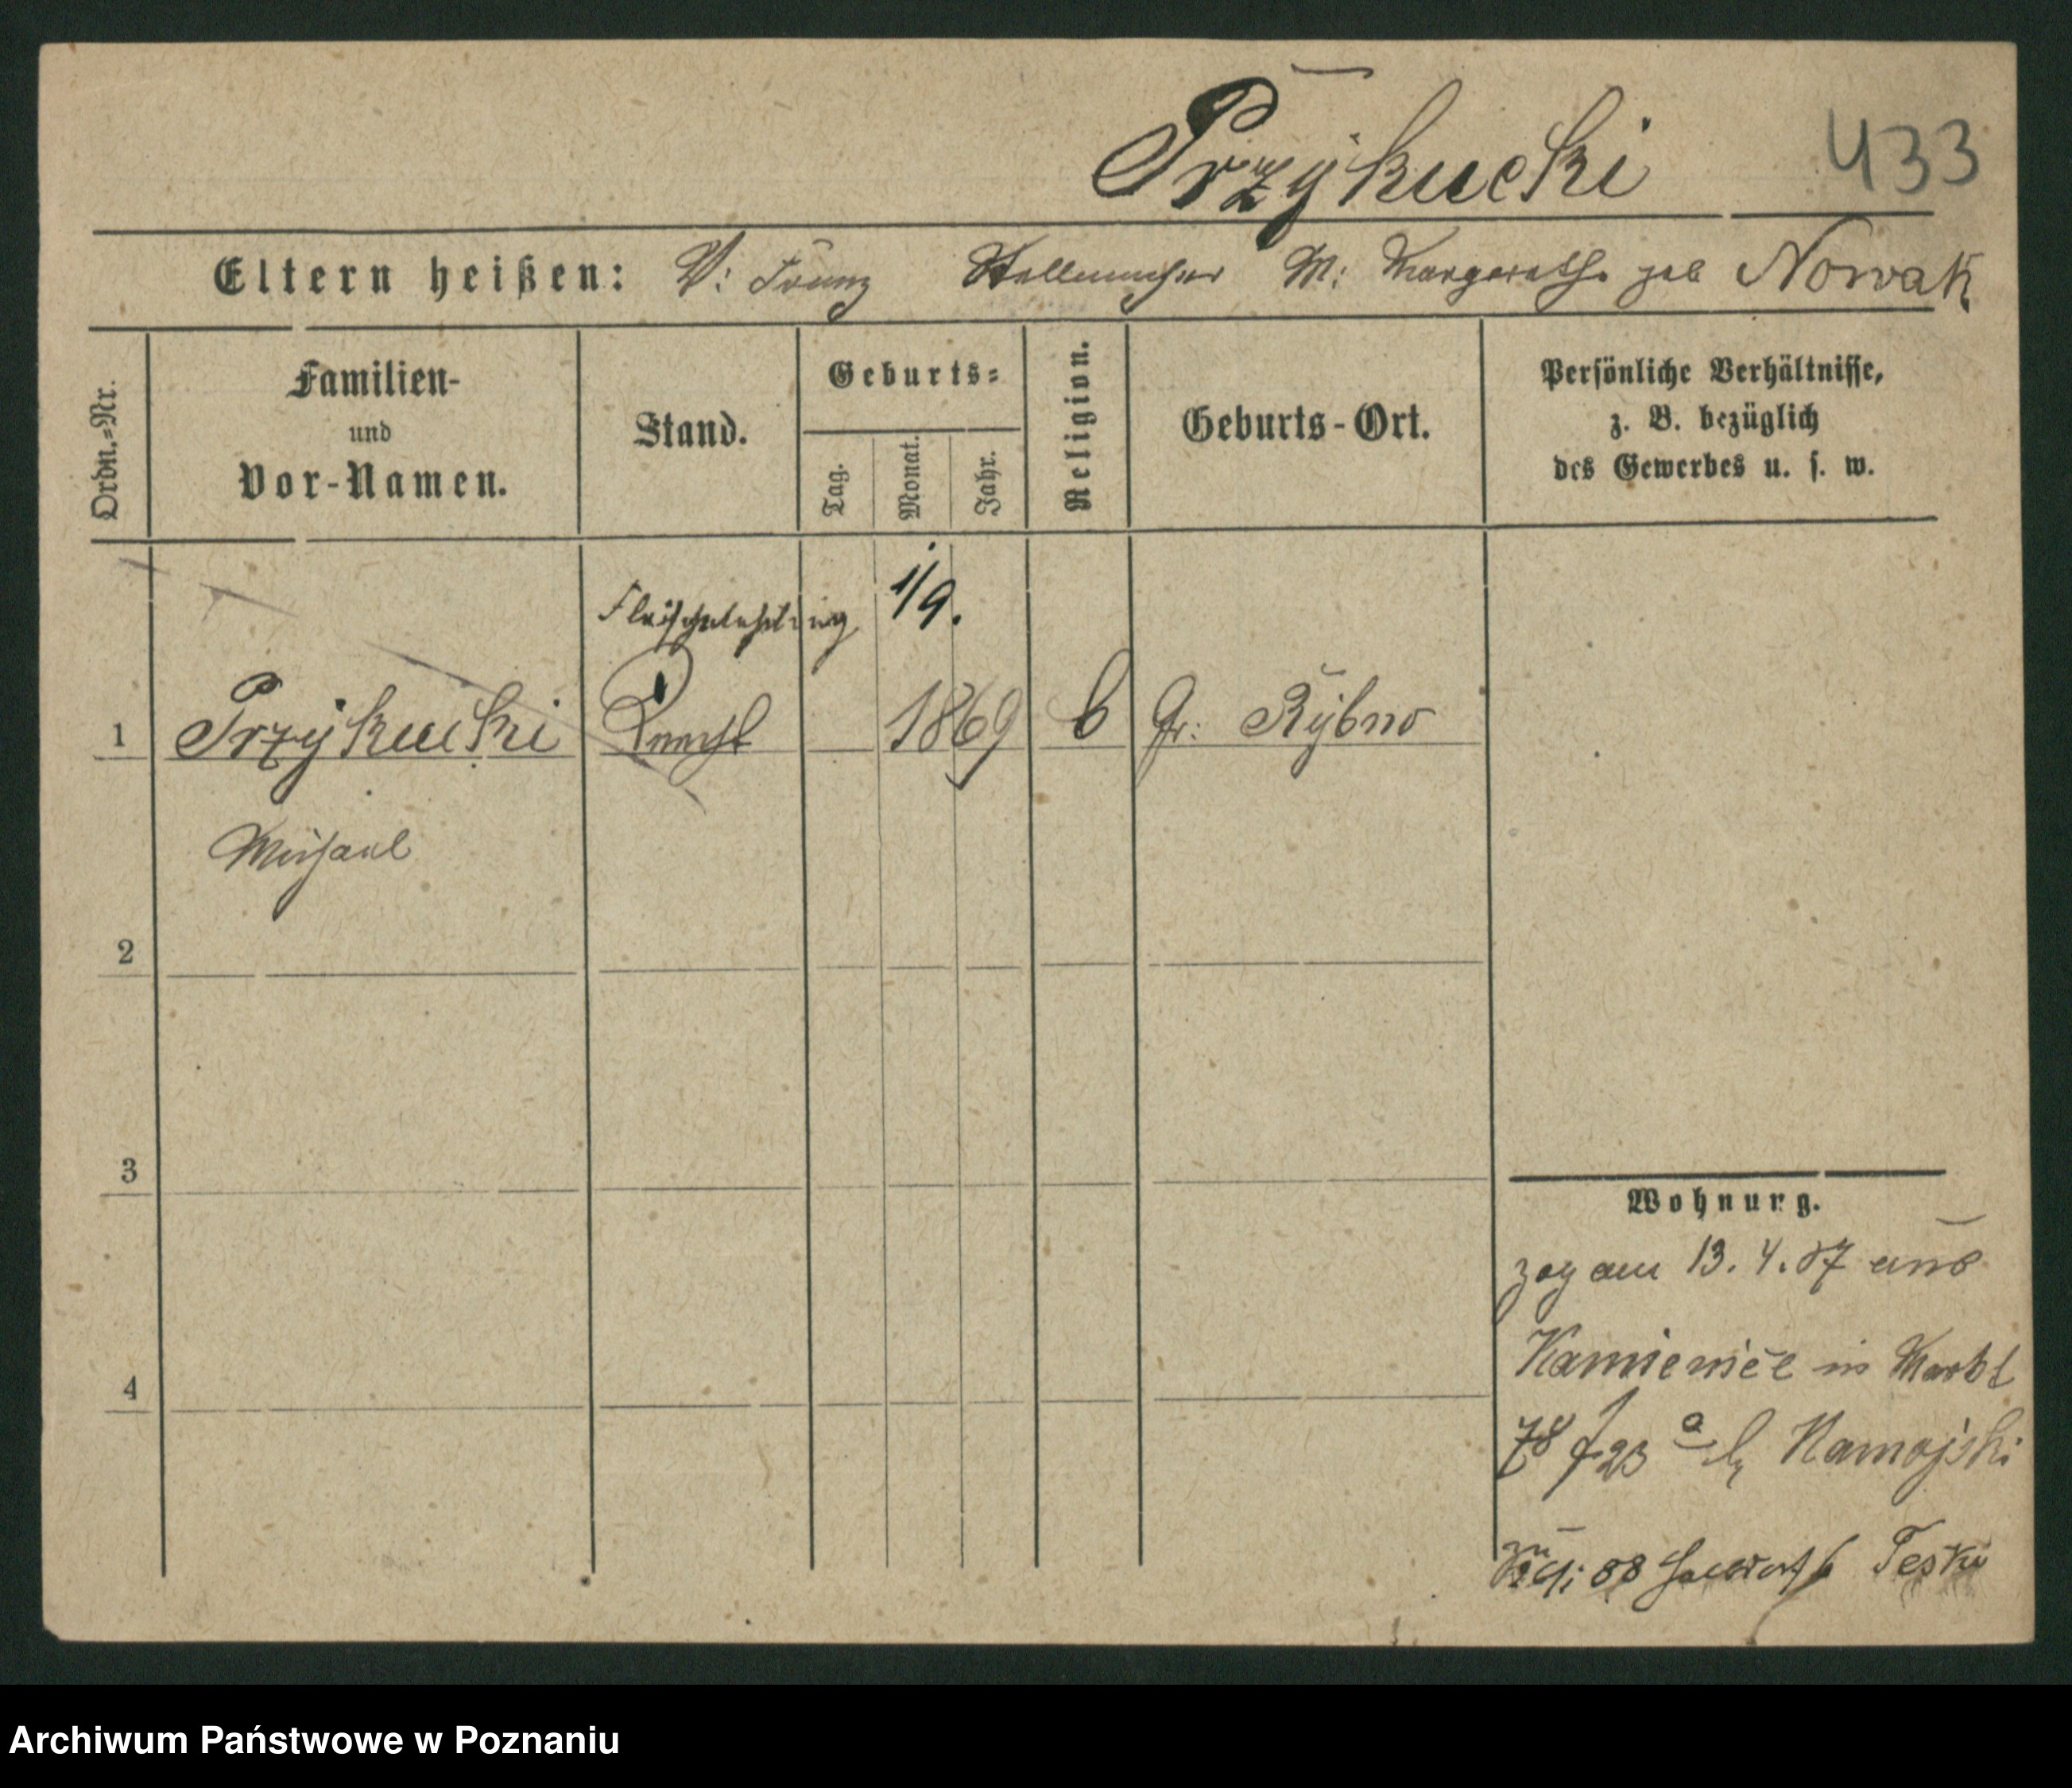 Przykucki 433
Eltern heißen: V: Franz Stellmacher M: Margarethe geb Nowak
Ordn.=Nr.
Familien- und Vor-Namen.
Stand.
Geburts=
Tag. Monat. Jahr.
Religion.
Geburts-Ort.
Persönliche Verhältnisse,
z. B. bezüglich
des Gewerbes u. s. w.
Fleischerlehrling 1/9.
1 Przykucki Knecht 1869 Gr: Rybno
Michael
2
3
4
Wohnung.
zog am 13. 4. 87 aus
Kamieniec in Markt
78 23 a Namojski
88 Teske
Archiwum Państwowe w Poznaniu